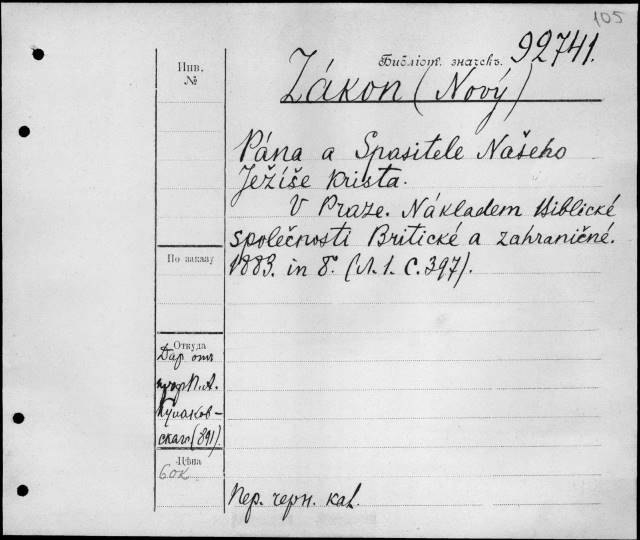 105
Библіот. значекъ. 92741.
Инв.
№
Zákon (Nový)
Pána a Spasitele Našeho
Ježíše Krista.
V Praze. Nákladem Biblické
společnosti Britické a zahraničné.
1883. in 8°. (Л. 1. С. 397).
По заказу
Откуда
Даръ отъ
проф. П. А.
Кулаков-
скаго (891).
Цѣна
60к
Пер. черн. кал.